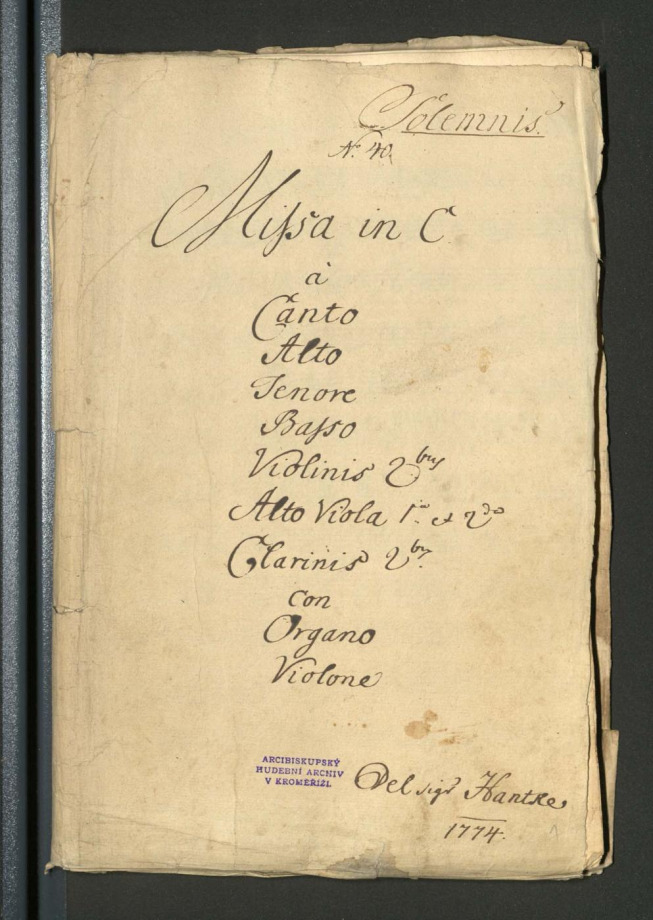 Solemnis.
N.º 40.
Missa in C
à
Canto
Alto
Tenore
Basso
Violinis 2bus
Alto Viola 1.mo et 2do
Clarinis 2bus
con
Organo
Violone
ARCIBISKUPSKÝ
HUDEBNÍ ARCHIV
V KROMĚŘÍŽI.
Del sigr Hantke
1774.
1